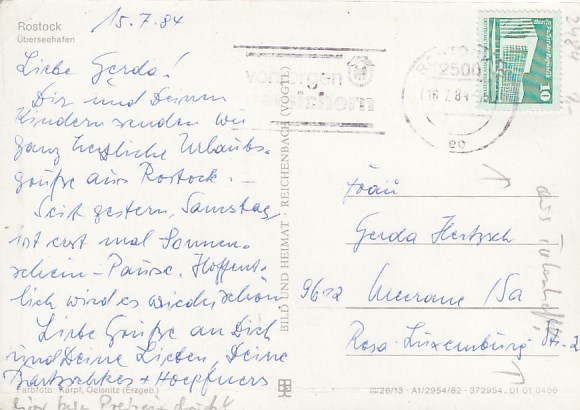 15.7.84
Rostock
Überseehafen
Liebe Gerda!
Dir und Deinen
Kindern senden wir
ganz herzliche Urlaubs-
grüße aus Rostock. –
Seit gestern, Samstag,
ist erst mal Sonnen-
schein-Pause. Hoffent-
lich wird es wieder schön.
Liebe Grüße an Dich
und Deine Lieben, Deine
+ Hoepfners
Farbfoto: Karpf, Oelsnitz (Erzgeb.)
BILD UND HEIMAT · REICHENBACH (VOGTL)
vorsorgen
2500
16.7.84
10
Frau
Gerda Hertzsch
9612 Meerane /Sa
Rosa-Luxemburg Str. 2
III/26/13 · A1/2954/82 · 372954 01 01 0486